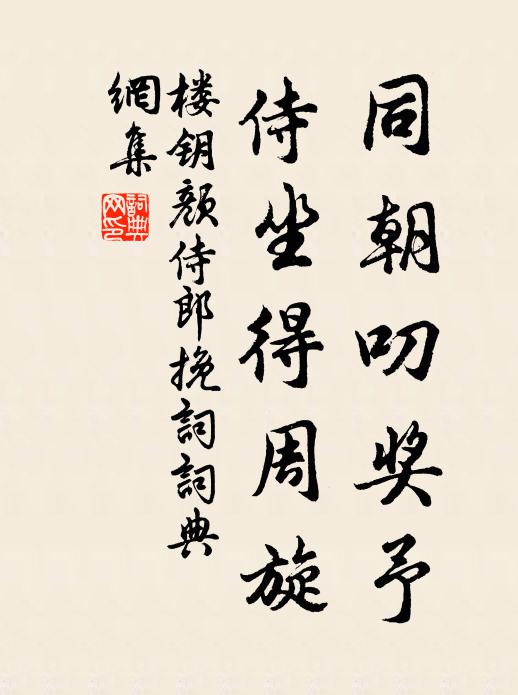 同朝叨奖予
侍坐得周旋
楼钥颜侍郎挽詞詞典
網集
詞典
网印